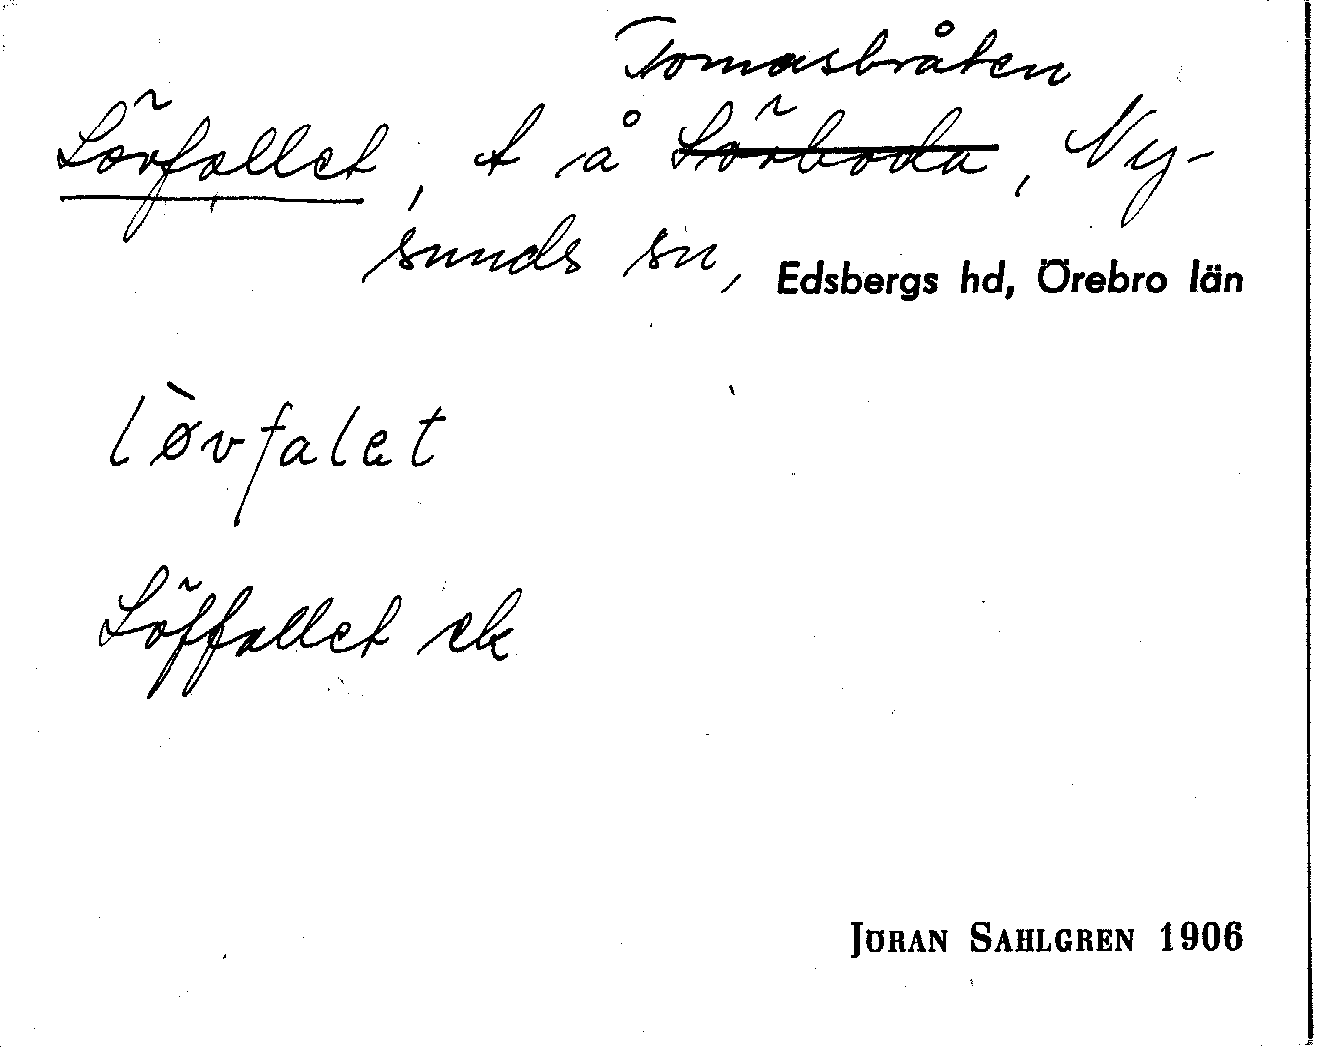 Tomasbråten
Lövfallet, t å Sörboda, Ny-
sunds sn, Edsbergs hd, Örebro län
lø̀vfalet
Löffallet ek
JÖRAN SAHLGREN 1906